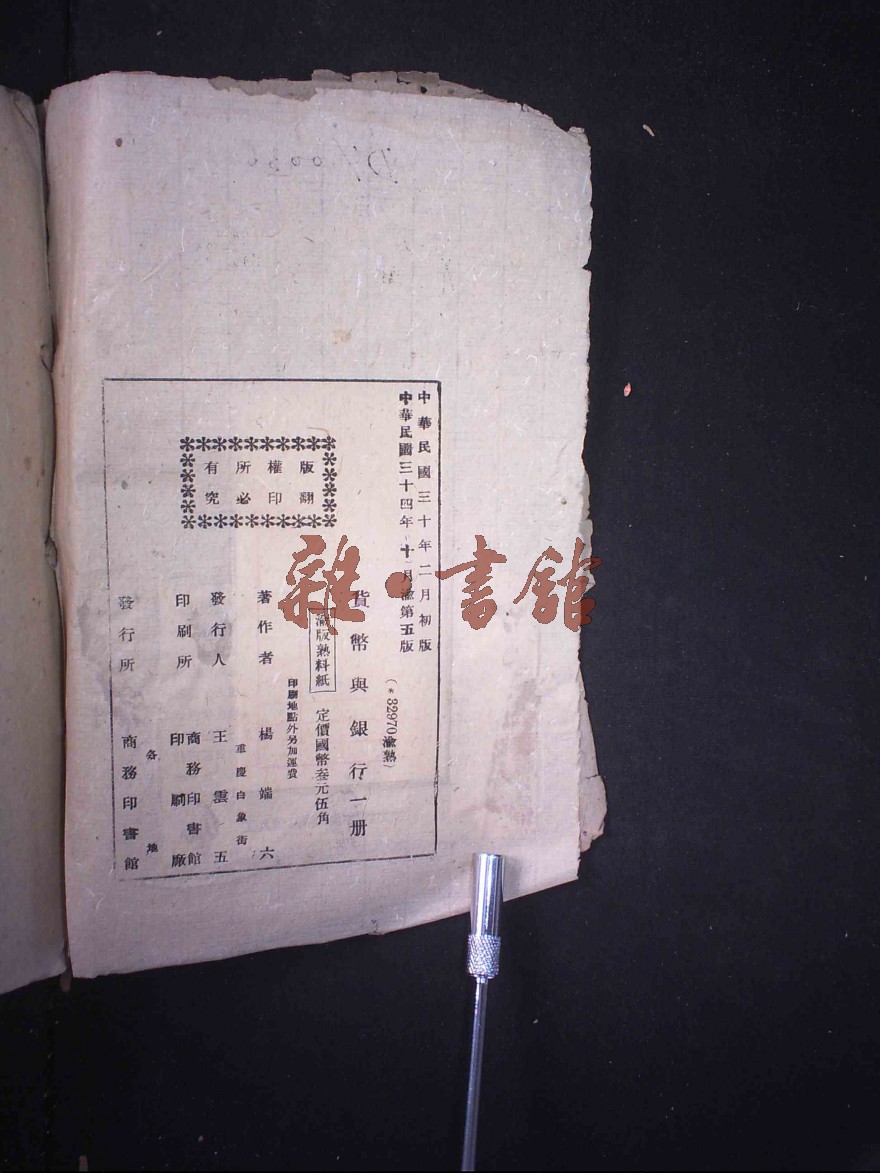 中華民國三十年二月初版
中華民國三十四年十月渝第五版
(＊32970渝熟)
貨幣與銀行一册
渝版熟料紙
定價國幣叁元伍角
印刷地點外另加運費
著作者 楊端六
重慶白象街
發行人 王雲五
印刷所 商務印書館
印刷廠
發行所 各地
商務印書館
版權所有
翻印必究
雜·書館